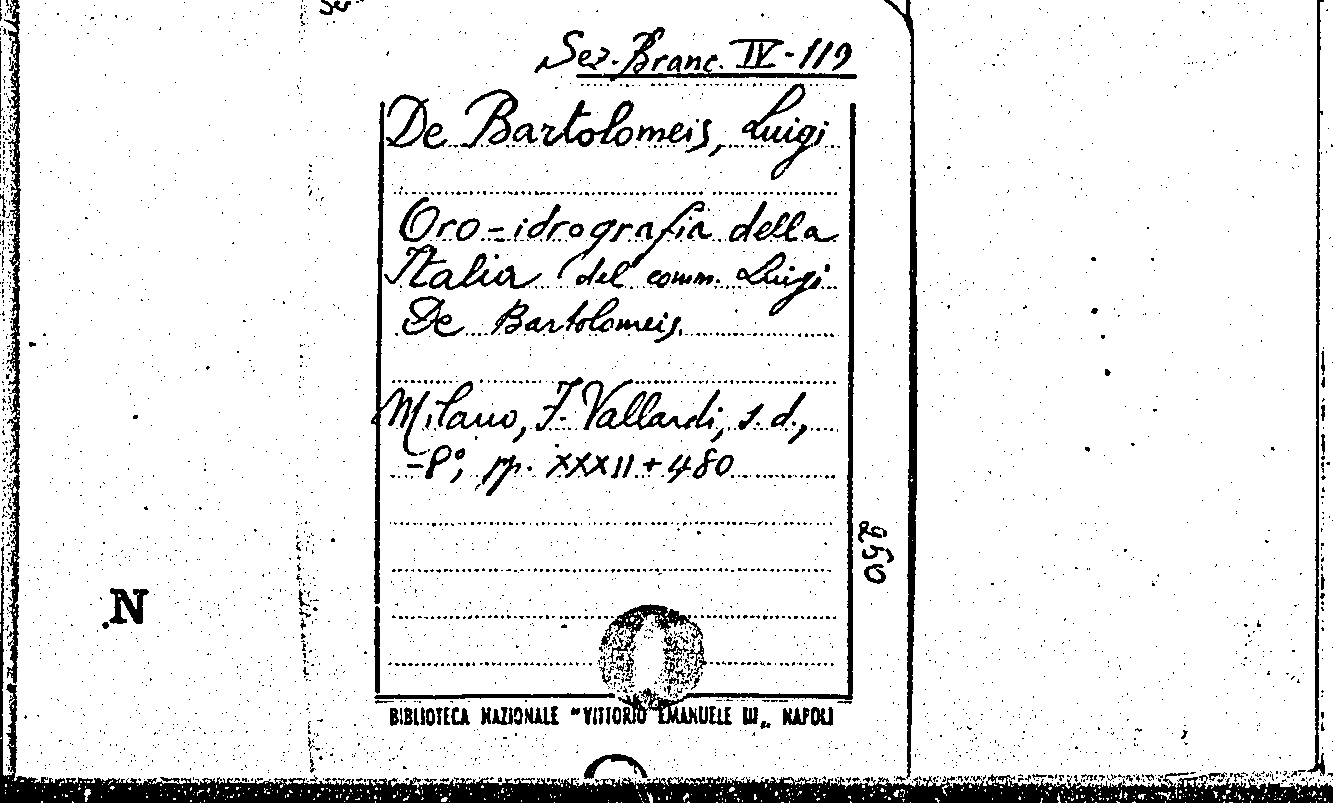 Sez. Branc. IV-119
De Bartolomeis, Luigi
Oro-idrografia della
Italia del comm. Luigi
De Bartolomeis.
Milano, F. Vallardi, s.d.,
-8°, pp. XXXII+480
950
N
BIBLIOTECA NAZIONALE "VITTORIO EMANUELE III„ NAPOLI